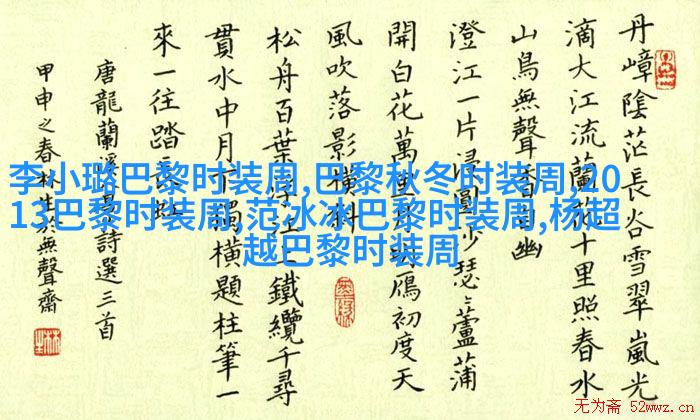 丹嶂陰茫長谷雪翠嵐光
滴大江流蘭花十里照春水
山鳥無聲香自幽
澄江一片浸圓沙瑟〻蘆蒲
開白花萬里雁初度天
風吹落影橫斜
松舟百葉江上鐵纜千尋
貫水中月下獨橫題柱筆一
來一往踏
唐龍蘭溪詩選三首
甲申之春林生於無聲齋
李小璐巴黎时装周,巴黎秋冬时装周,20
13巴黎时装周,范冰冰巴黎时装周,杨超
越巴黎时装周
无为斋 52wwz.cn